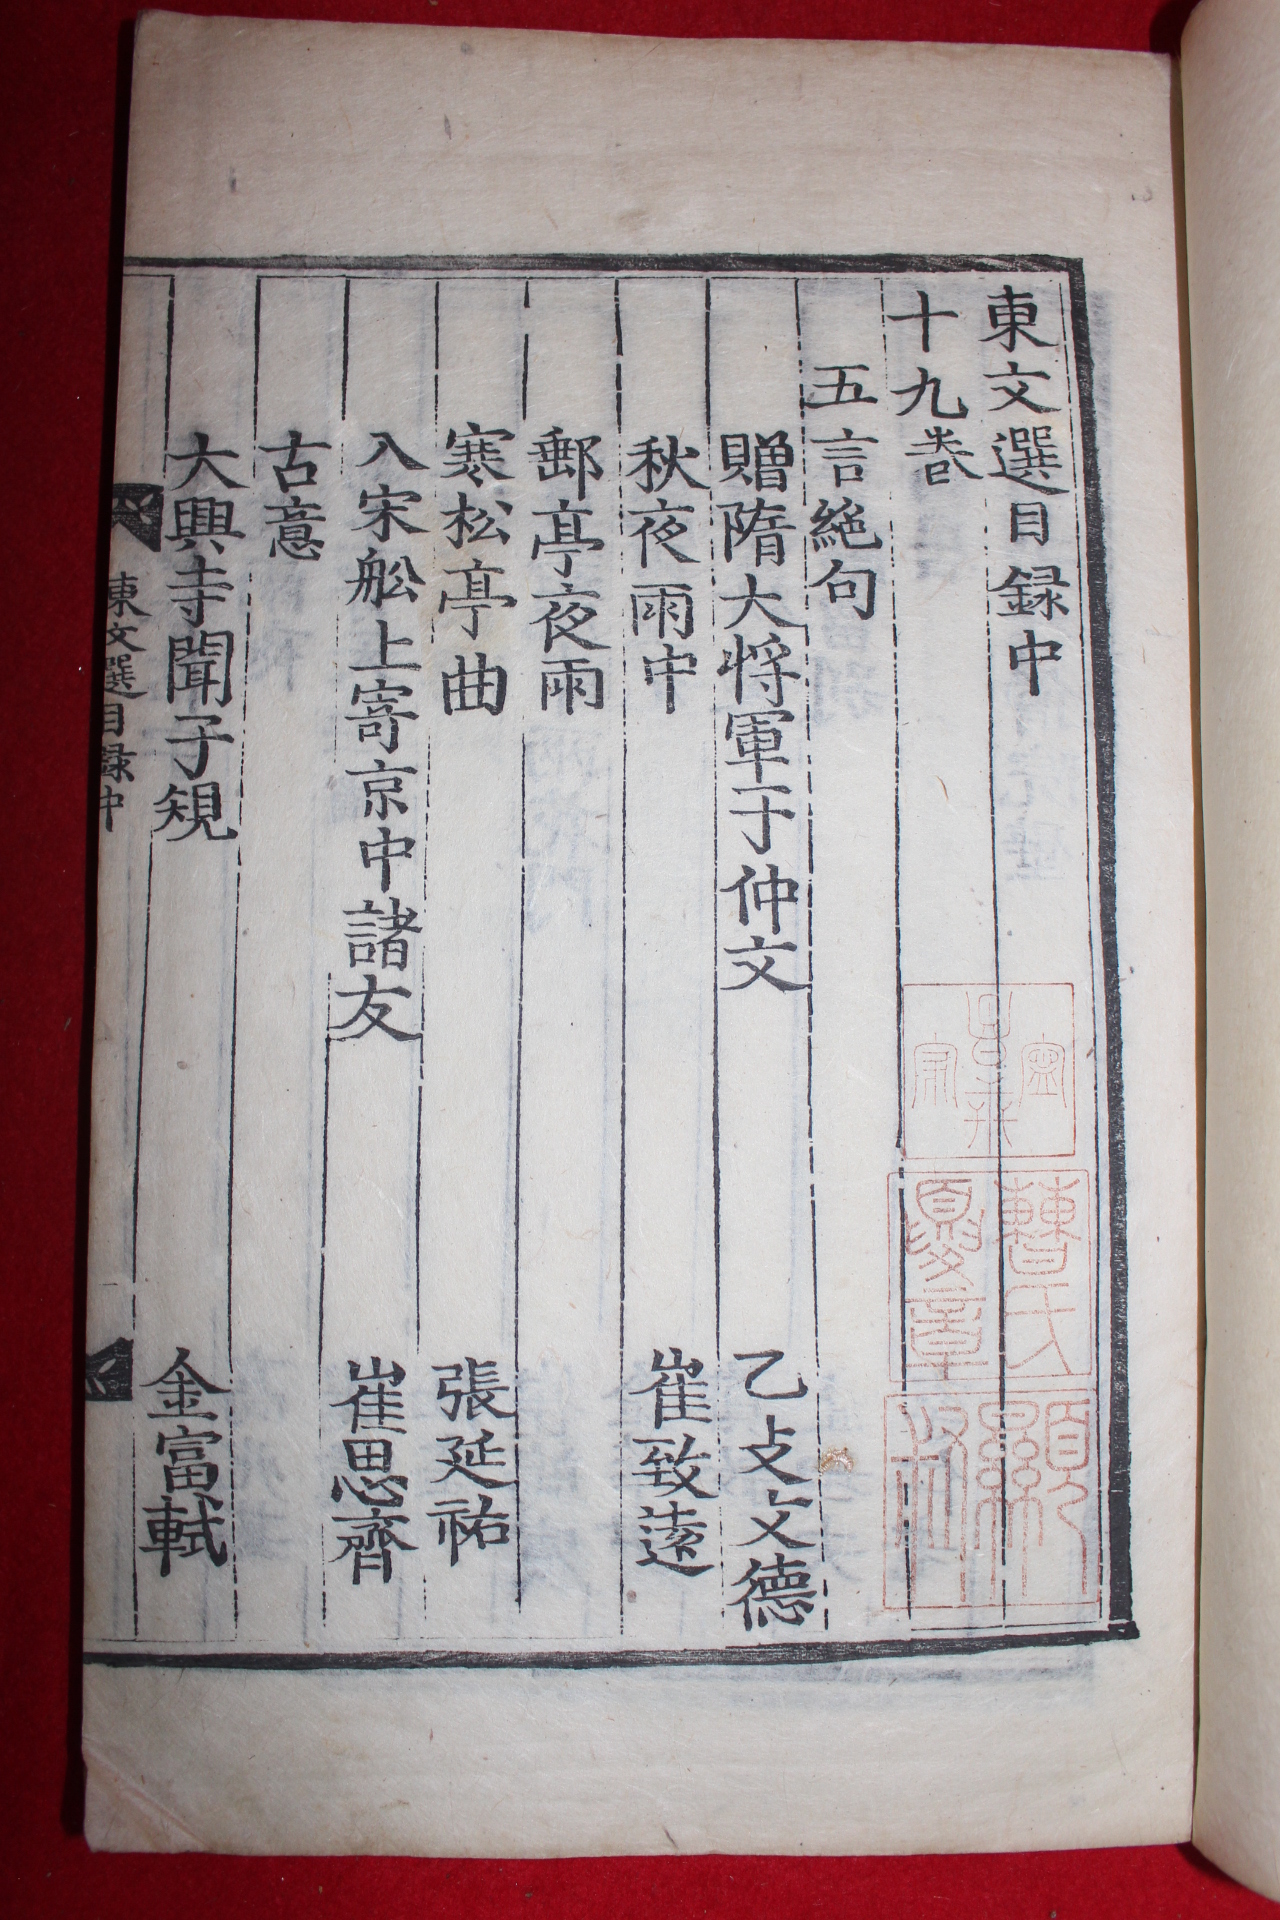 東文選目録中
十九卷
五言絶句
贈隋大將軍于仲文 乙攴文德
秋夜雨中 崔致遠
郵亭夜雨
寒松亭曲 張延祐
入宋舩上寄京中諸友 崔思齊
古意
大興寺聞子䂓 金富軾
東文選目録中